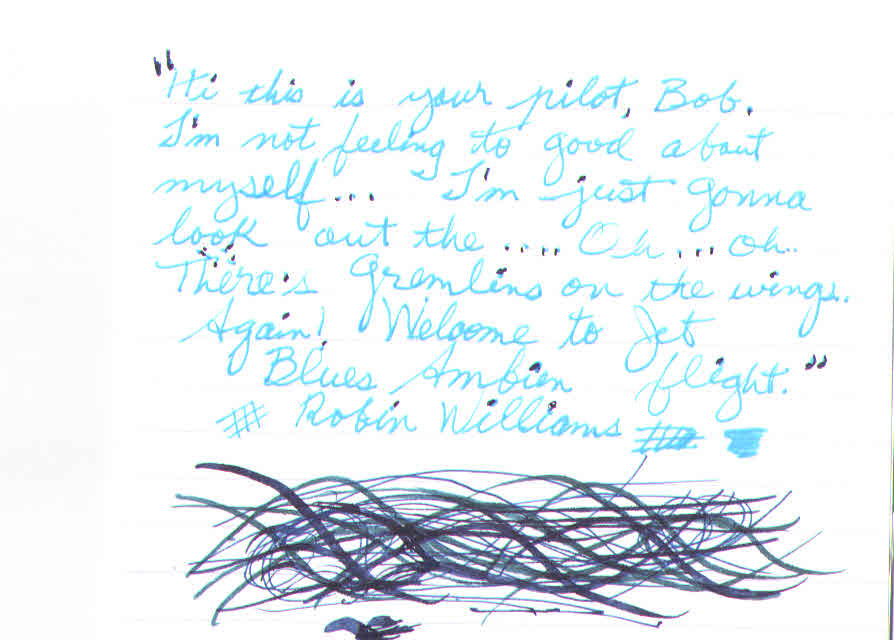 "Hi this is your pilot, Bob.
I'm not feeling to good about
myself... I'm just gonna
look out the .... Oh... oh..
There's Gremlins on the wings.
Again! Welcome to Jet
Blues Ambien flight."
# Robin Williams #